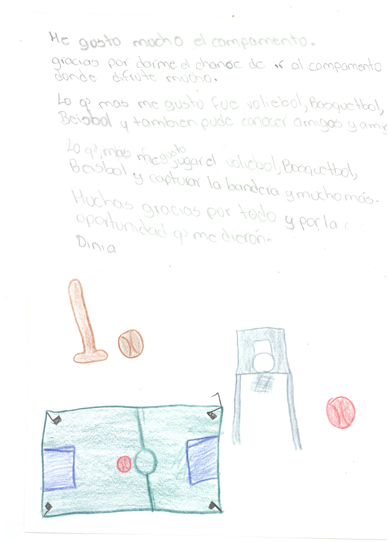 Me gusto mucho el campamento.
gracias por darme el chance de ir al campamento
donde difrute mucho.
Lo q' mas me gustó fue voliebol, Basquetbol,
Beisbol y tambien pude conocer amigos y
Lo q', mas me gusto jugar el voliebol, Basquetbol,
Beisbol y capturar la bandera y mucho más.
Muchas gracias por todo y por la
oportunidad q' me dieron.
Dinia